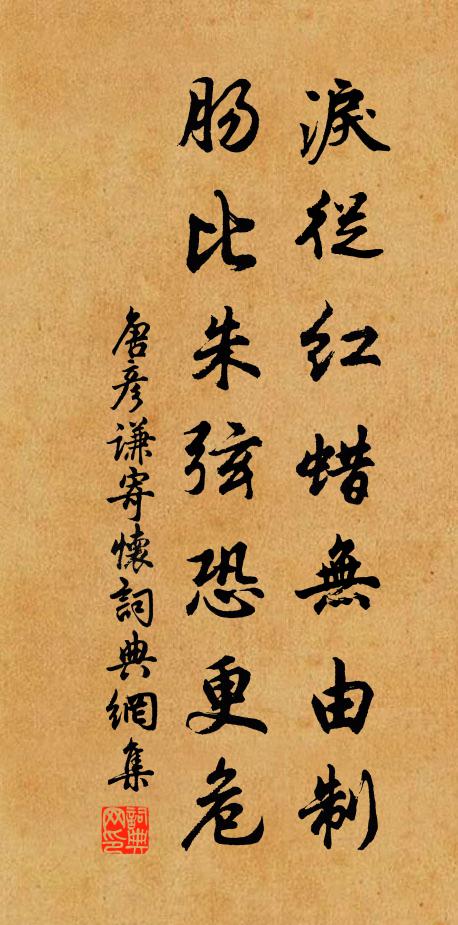 淚從红蜡無由制
肠比朱弦恐更危
唐彥谦寄懷詞典網集
詞典网印